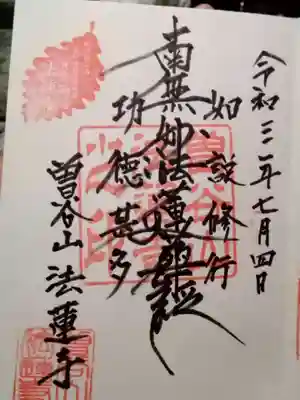 令和三年七月四日
如説修行
南無妙法蓮華経
功徳甚多
曽谷山 法蓮寺